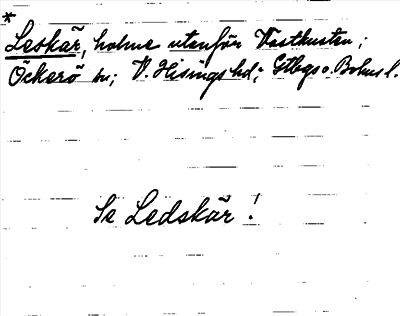 *
Leskär, holme utanför Västkusten;
Öckerö sn; V. Hisings hd; Gtbgs o. Bohus l.
Se Ledskär!